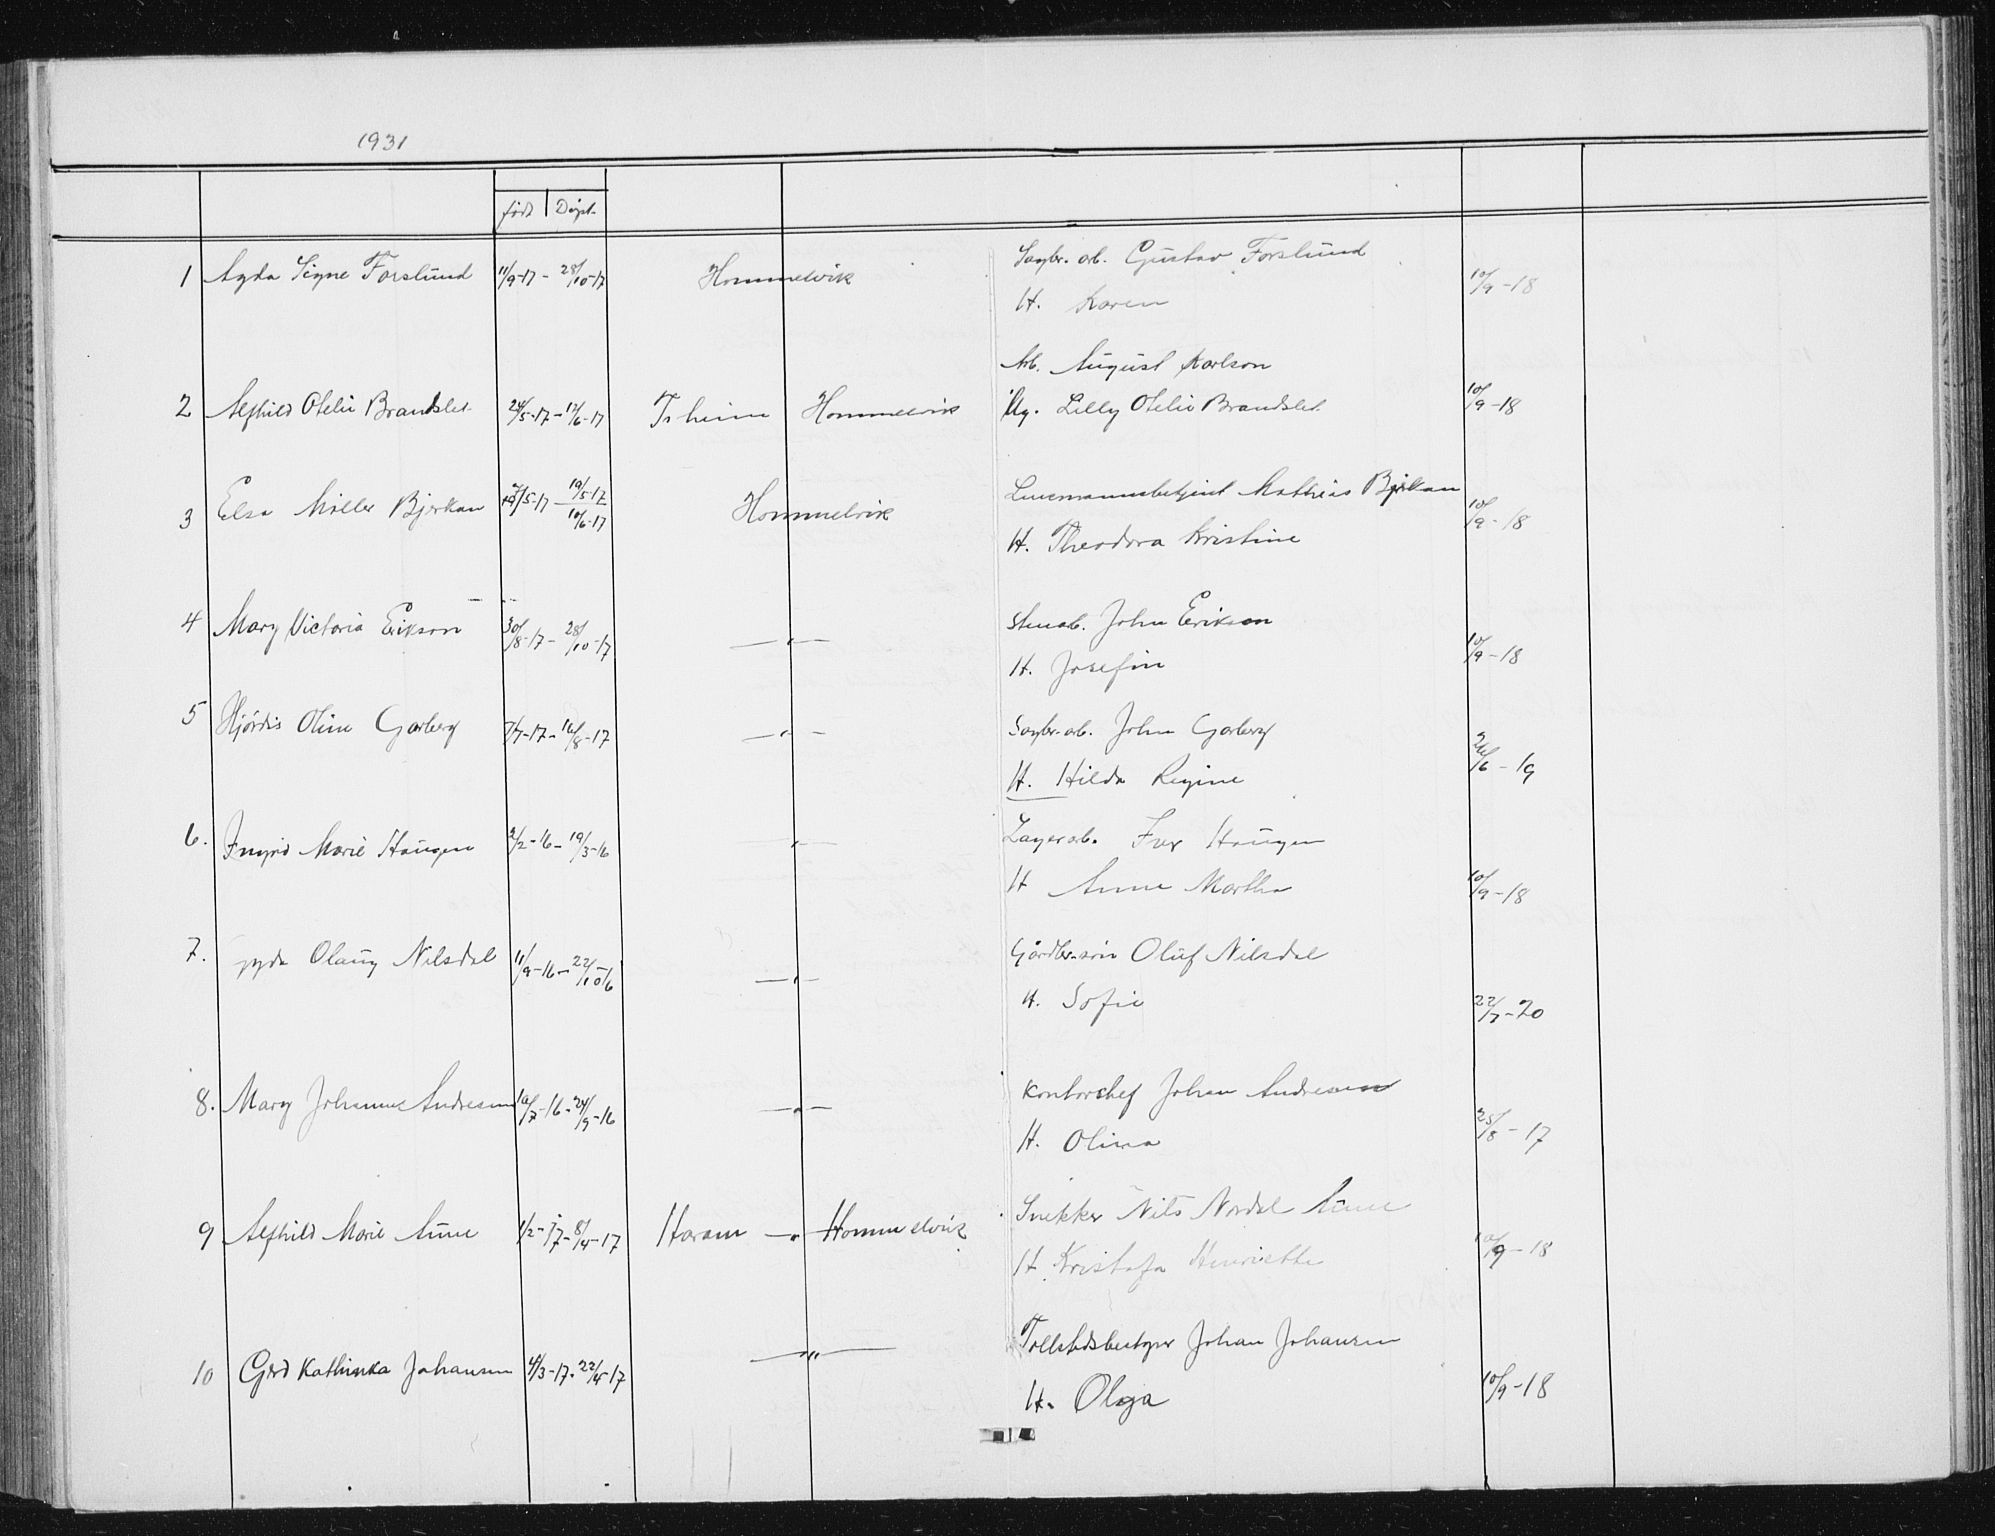 1931
født Døpt.
1 Agda Signe Forslund 11/9-17 - 28/10-17 Hommelvik Sagbr. arb. Gustav Forslund 10/9-18
H. Karen
Arb. August Karlson
2 Alfhild Otelie Brandslet 24/5-17 - 17/6-17 Tr.heim Hommelvik Ug. Lilly Otelie Brandslet 10/9-18
3 Elsa Møller Bjerkan /5-17 - 19/5-17 10/6-17 Hommelvik Lensmannsbetjent Mathias Bjerkan 10/9-18
H. Theodora Kristine
4 Mary Victoria Erikson 30/8-17 - 28/10-17 —"— Stenarb. John Erikson 10/9-18
H. Josefin
5 Hjørdis Oline Garberg 7/7-17 - 16/8-17 —"— Sagbr.arb. John Garberg 26/6-19
H. Hilda Regine
6. Ingrid Marie Haugen 2/2-16 - 19/3-16 —"— Lagerarb. Iver Haugen
H Anne Martha 10/9-18
7. Gyda Olaug Nilsdal 11/9-16 - 22/10-16 —"— Gårdbr.søn Oluf Nilsdal
H. Sofie 22/7-20
8. Mary Johanne Andresen 10/7-16 - 24/9-16 —"— Kontorchef Johan Andresen
H. Olina 25/8-17
9 Alfhild Marie Aune 1/2-17 - 8/4-17 Haram —"— Hommelvik Snekker Nils Nordal Aune
H Kristofa Henriette 10/9-18
10 Gerd Kathinka Johansen 4/3-17 - 22/4-17 —"— Tollstedsbestyrer Johan Johansen
H. Olga 10/9-18